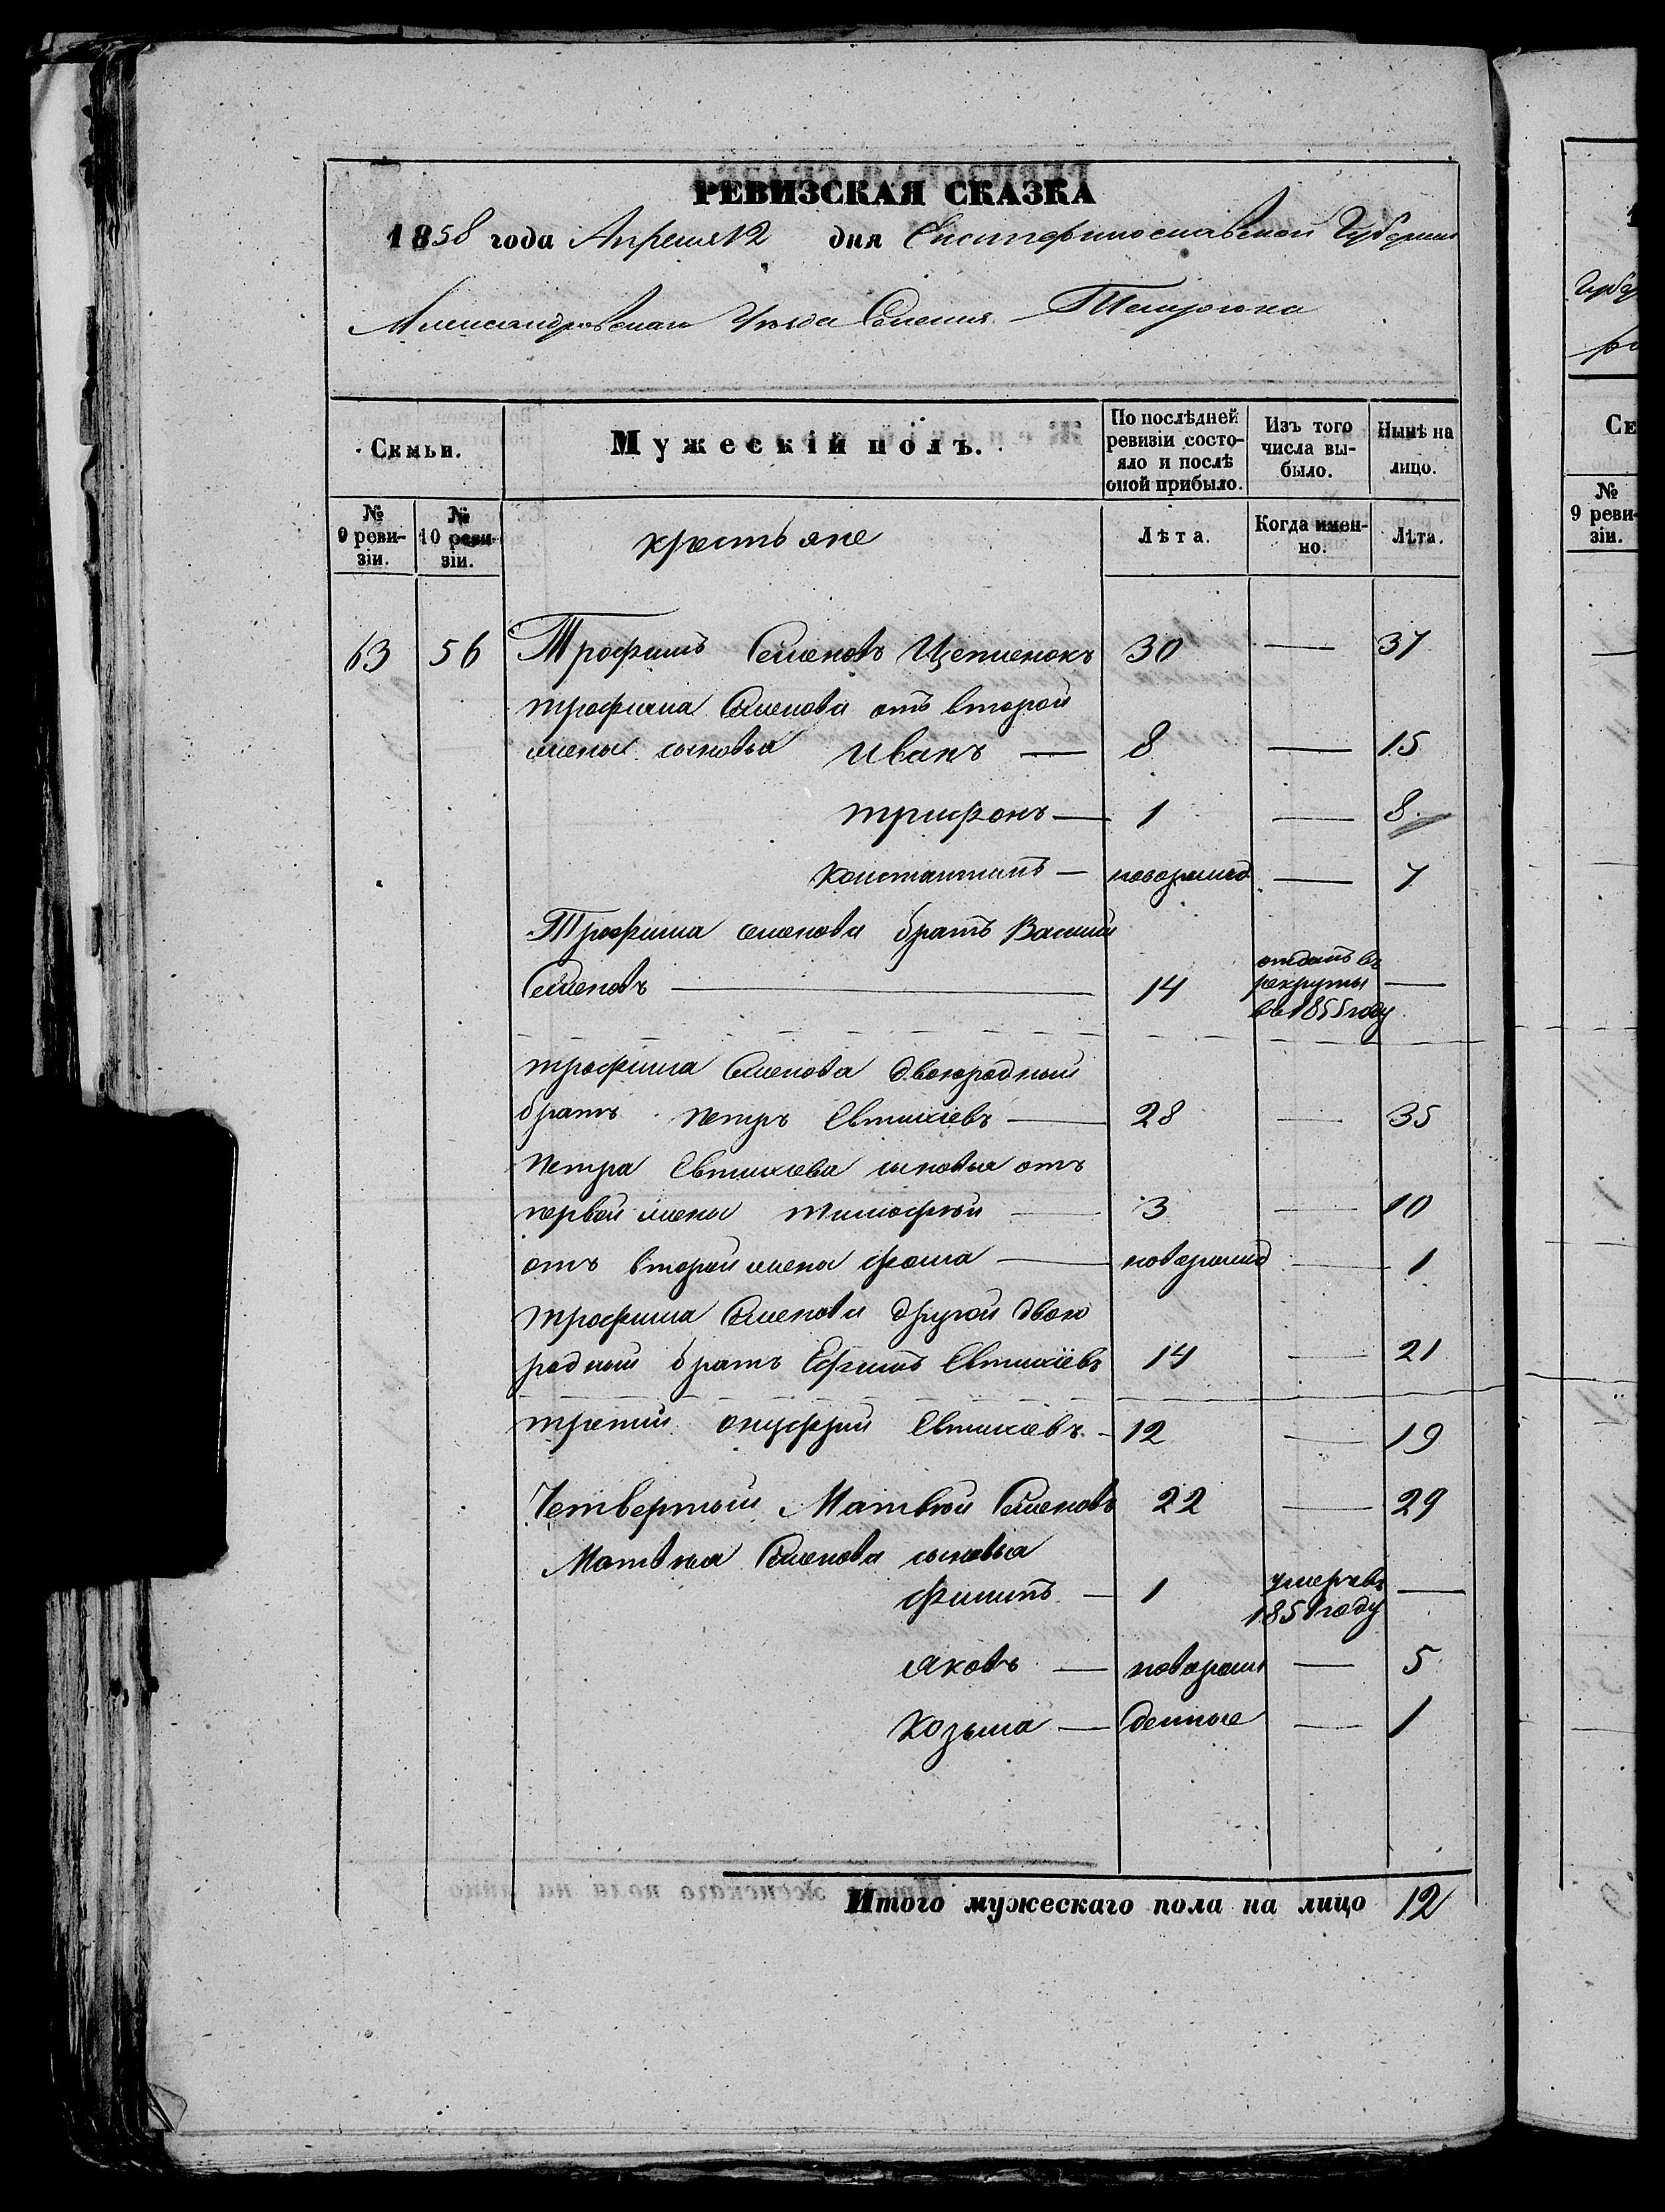 РЕВИЗСКАЯ СКАЗКА
1858 года Апреля 12 дня Екатеринославской Губернии
Александровскаго Уезда Селения Темрюка
Семьи.
Мужескій полъ.
По послѣдней ревизіи состояло и послѣ оной прибыло.
Изъ того числа выбыло.
Нынѣ на лицо.
№ 9 ревизіи.
№ 10 ревизіи.
крестьяне
Лѣта.
Когда именно.
Лѣта.
63 56 Трофимъ Семеновъ 30 — 37
трофима Семенова отъ второй
жены сыновья Иванъ — 8 — 15
трифонъ — 1 — 8
Константинъ — новорожд. — 7
Трофима семенова братъ Василий
Семеновъ — 14 отданъ въ рекруты въ 1855 году —
трофима Семенова двоюродный
братъ петръ Евтихіевъ — 28 — 35
петра Евтихіева сыновья отъ
первой жены тимофѣй — 3 — 10
отъ второй жены фома — новорожд — 1
трофима Семенова другой двою
родный братъ Ефимъ Евтихіевъ 14 — 21
третий онуфрий Евтихіевъ — 12 — 19
Четвертый Матвѣй Семеновъ 22 — 29
Матвѣя Семенова сыновья
филипъ — 1 умеръ въ 1851 году —
яковъ — новорож — 5
Козьма — денные — 1
Итого мужескаго пола на лицо 12
№
9 реви-
зіи.